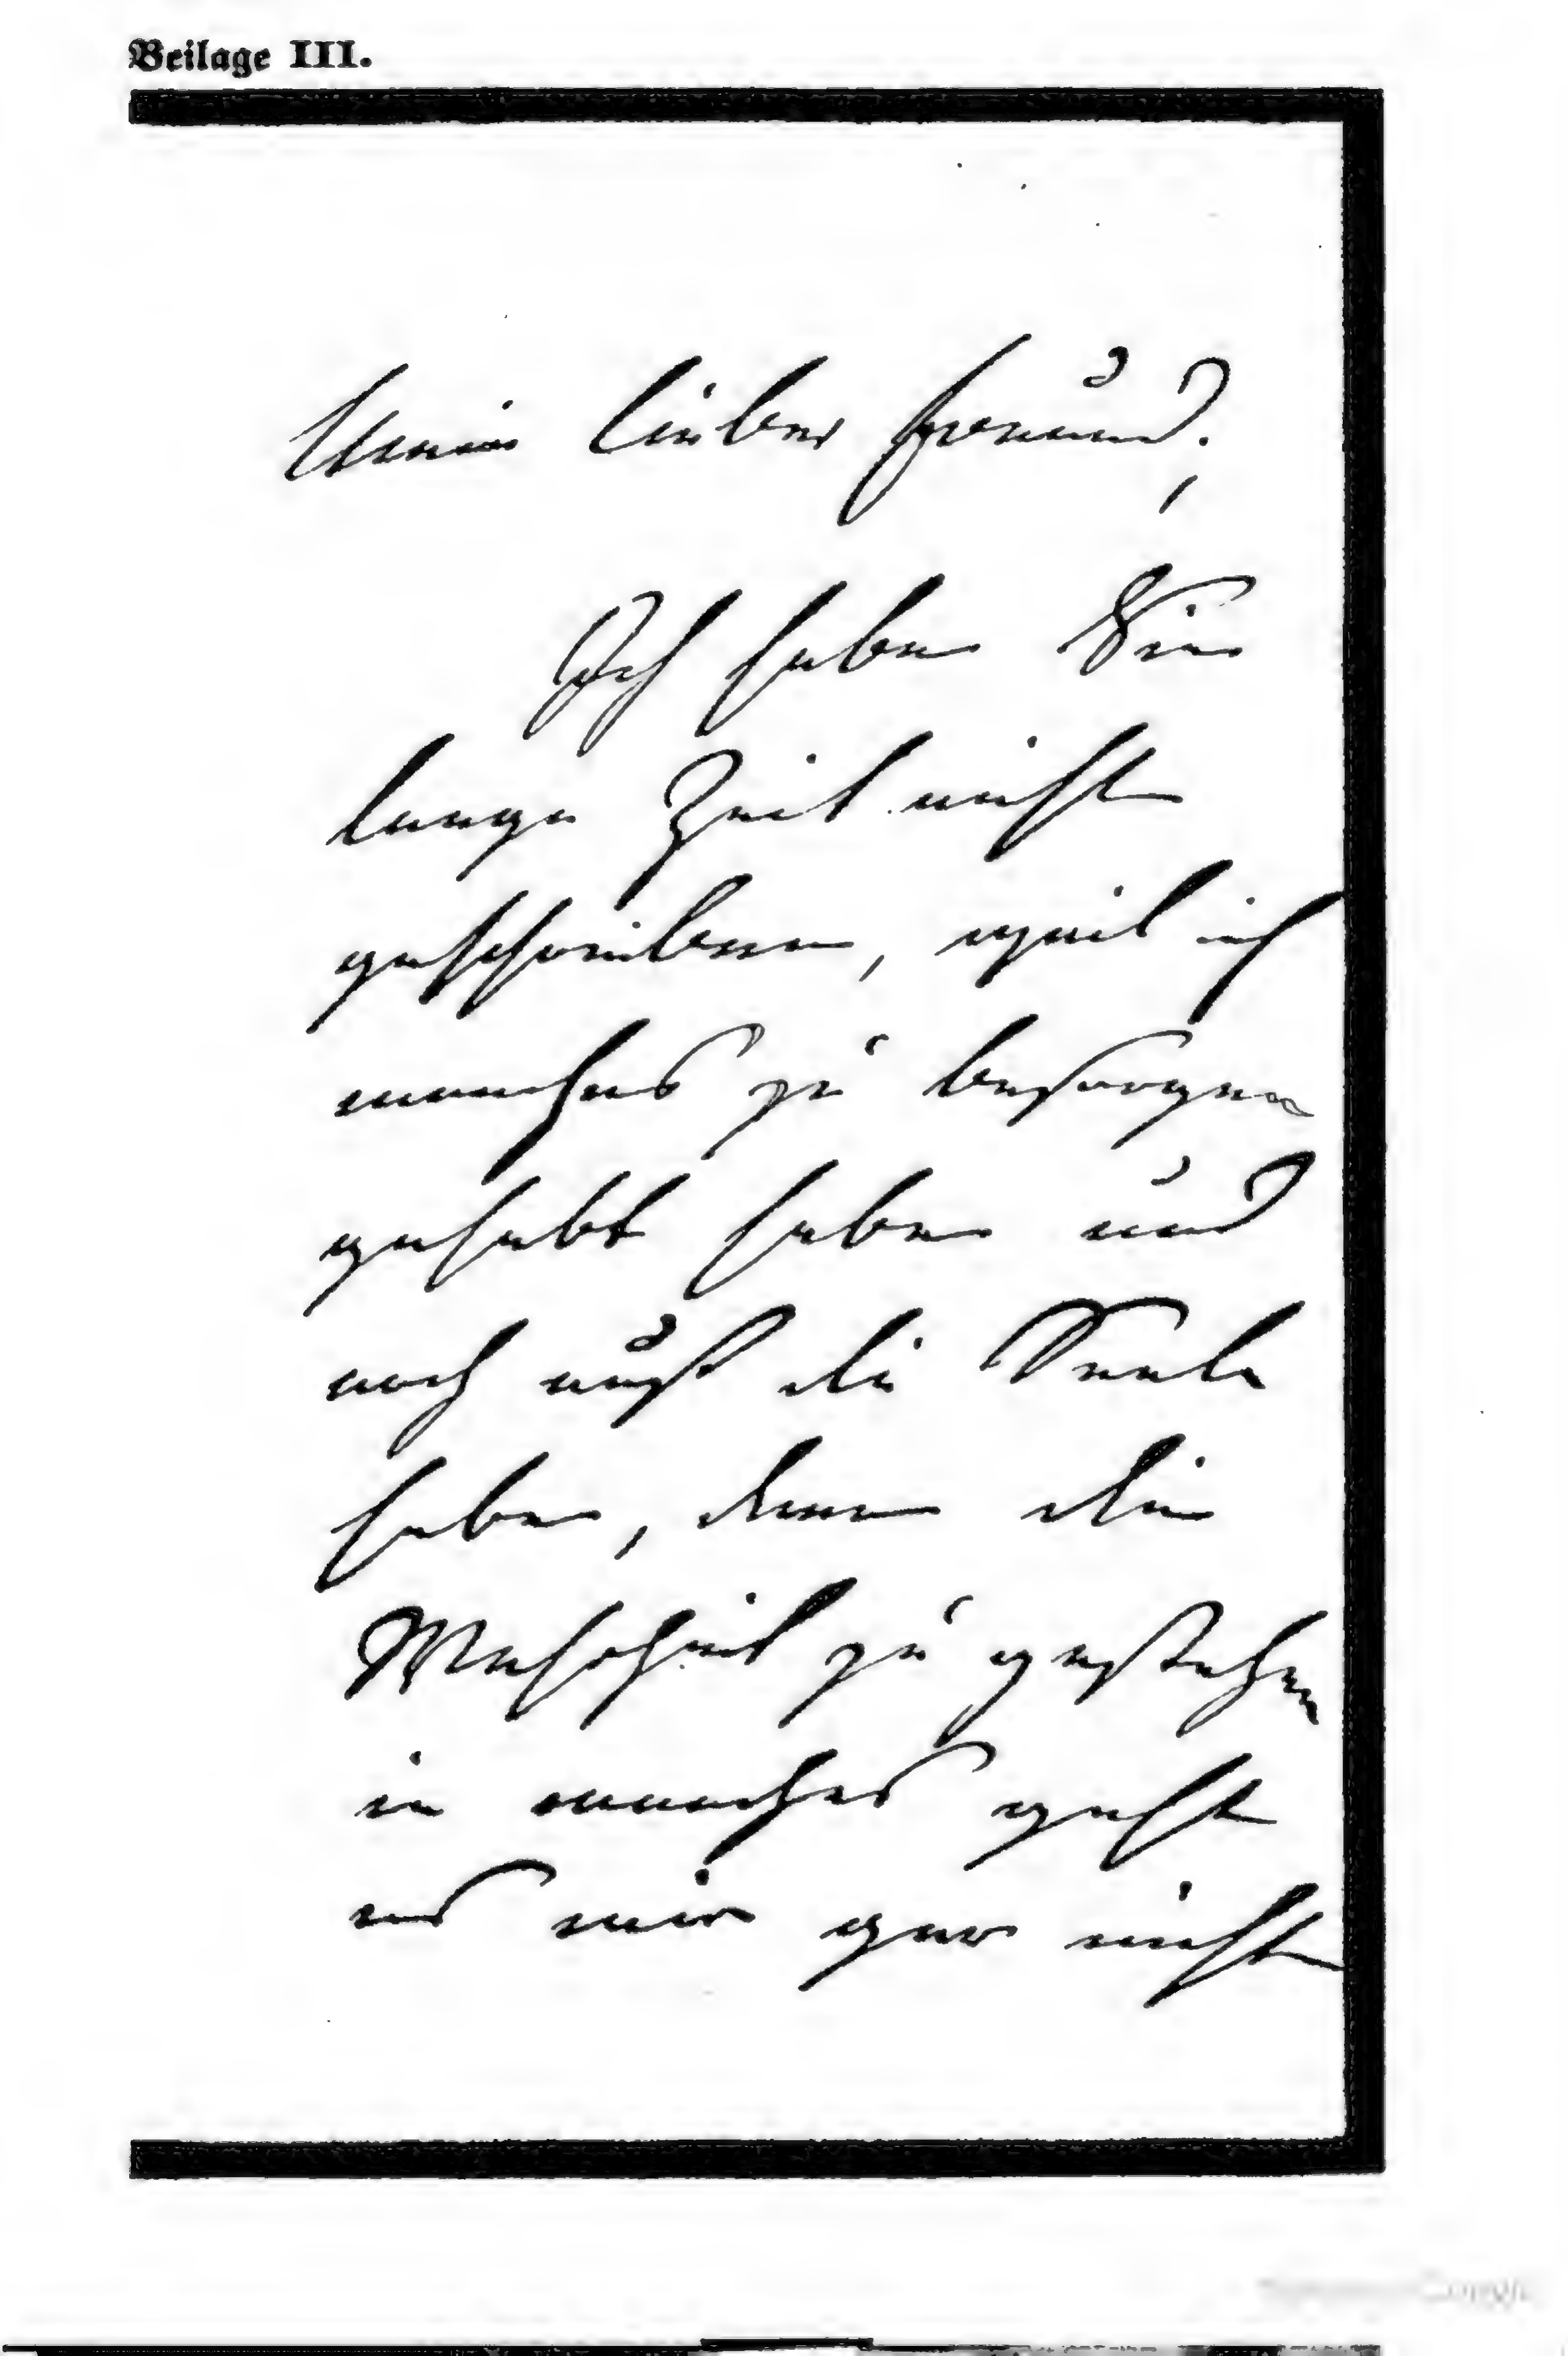 Beilage III.
Mein lieber Freund,
Ich habe
lange Zeit nicht
geschrieben, weil ich
manches zu besorgen
gehabt habe und
noch auf die Seele
habe, denn die
Wahrheit zu gestehen
in manches geht
es mir gar nicht